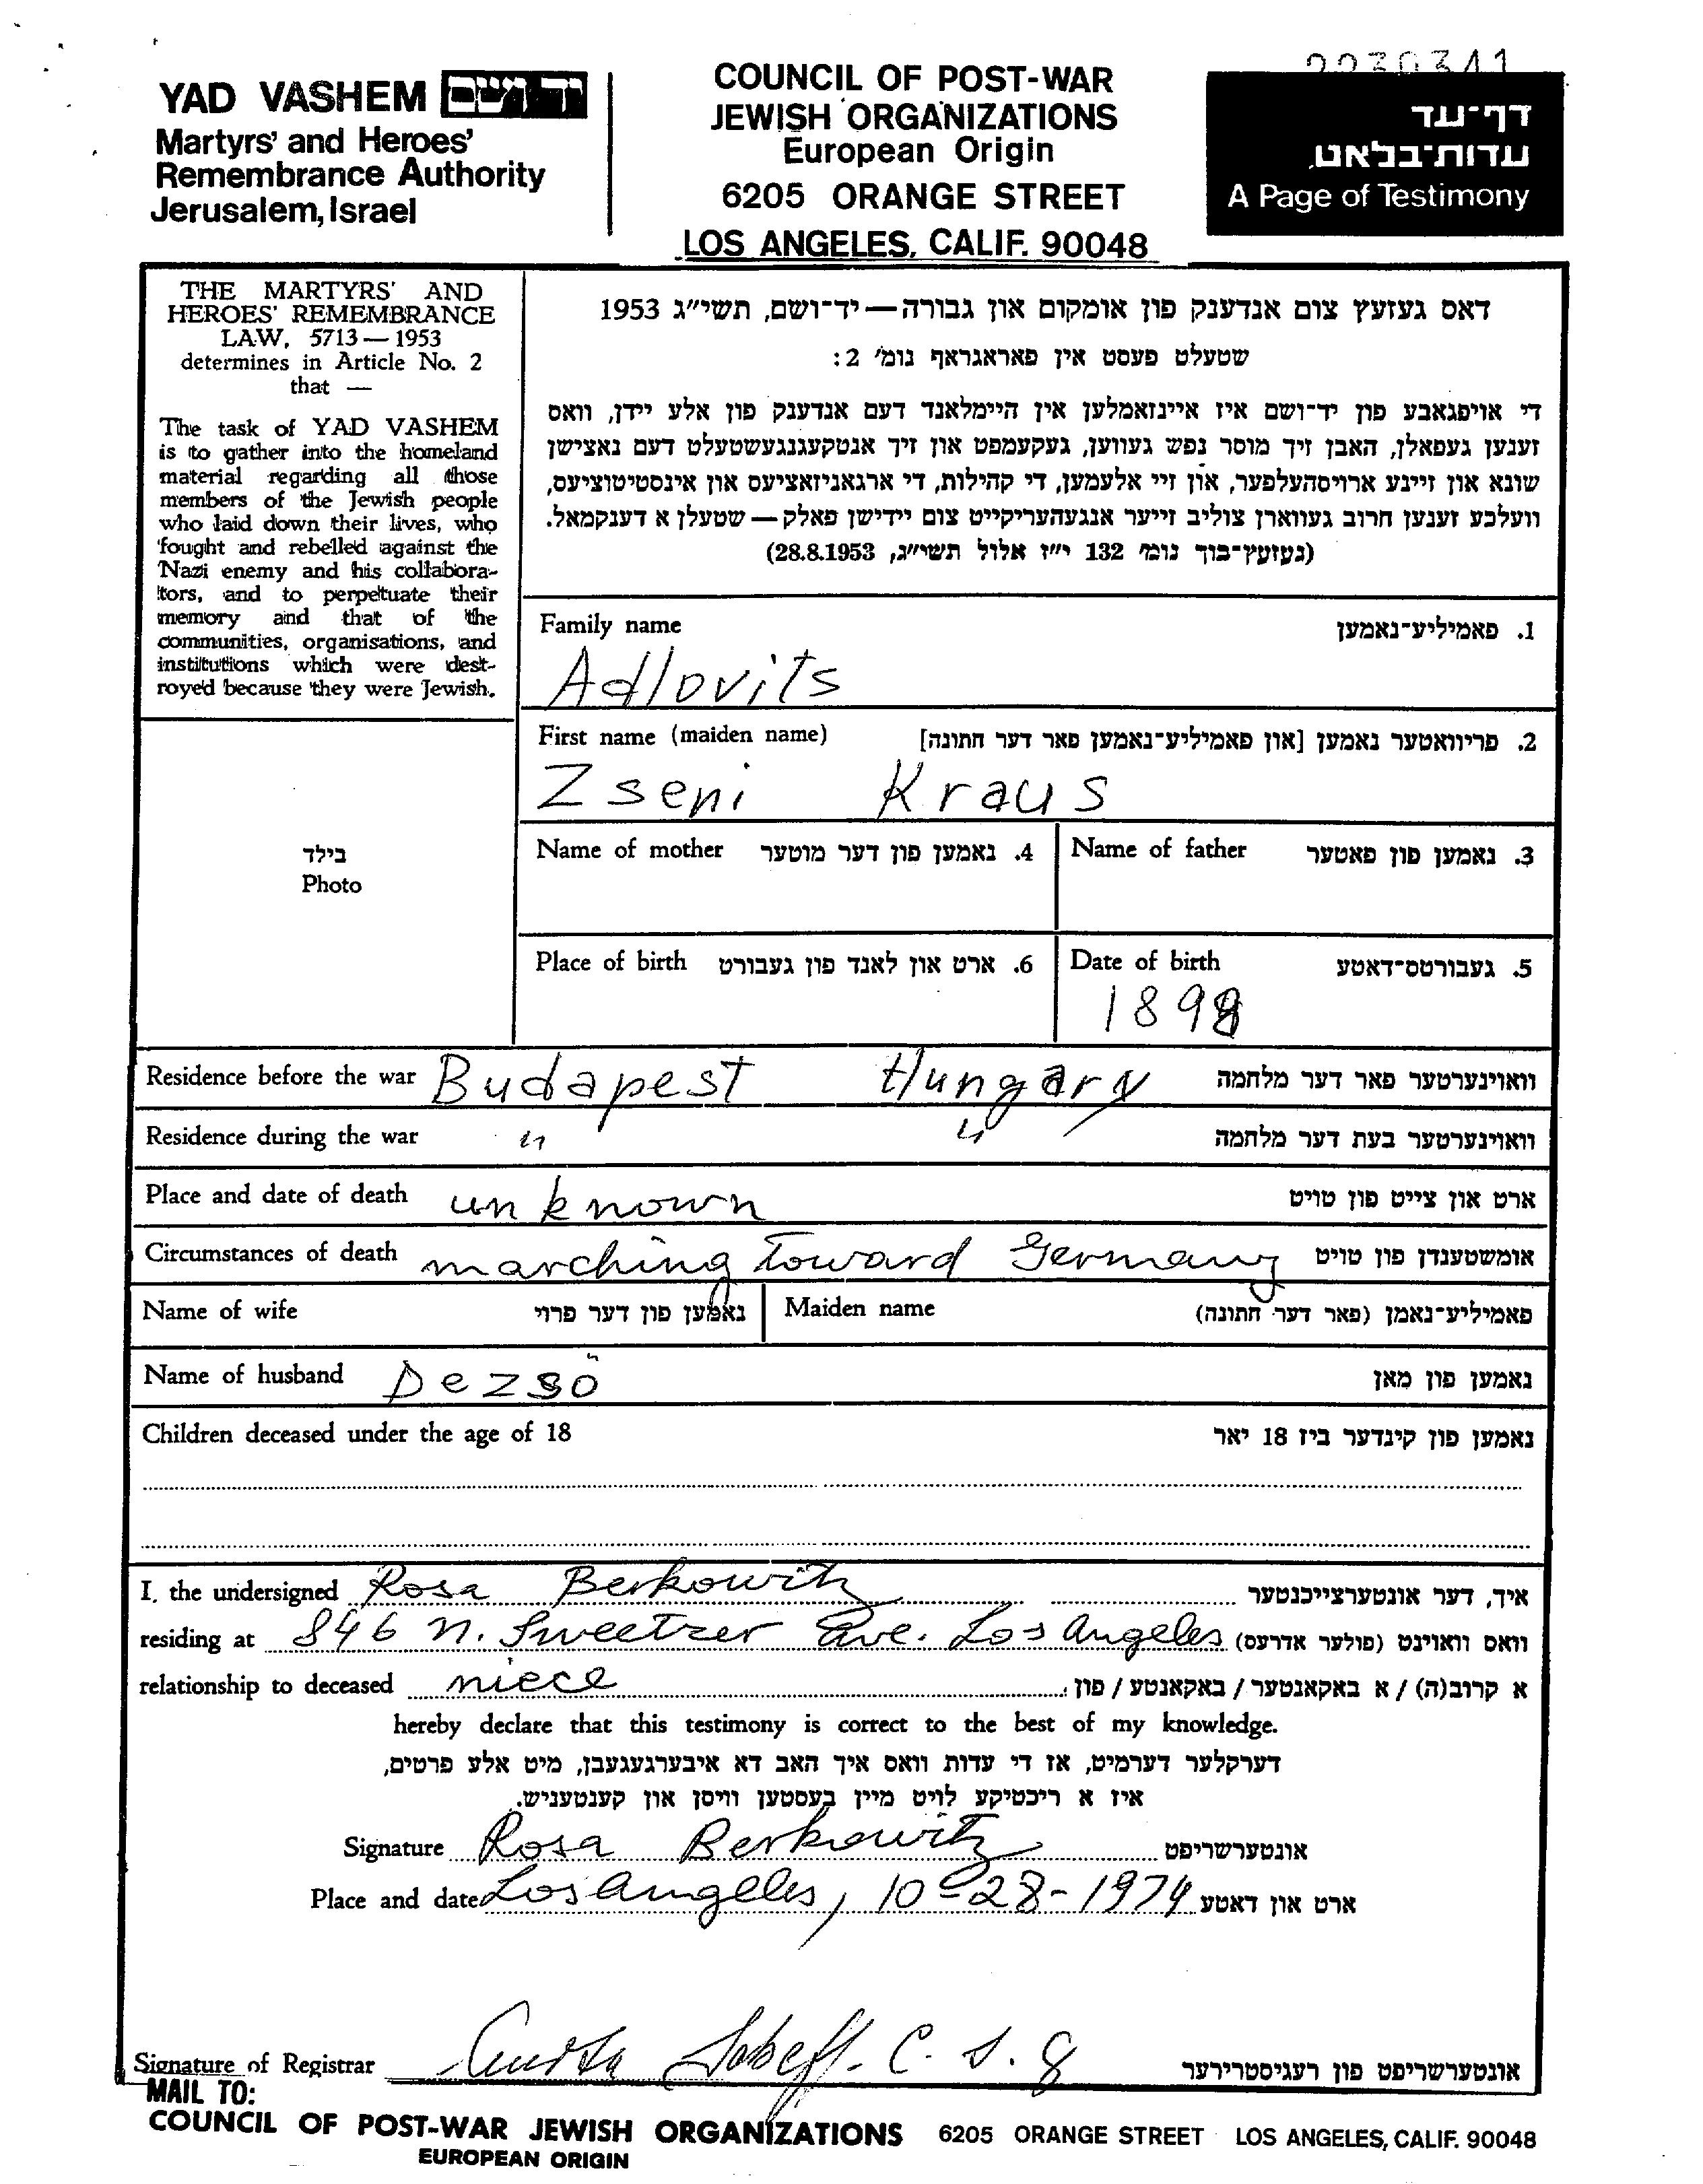 2230341
YAD VASHEM יד ושם
Martyrs' and Heroes'
Remembrance Authority
Jerusalem, Israel
COUNCIL OF POST-WAR
JEWISH ORGANIZATIONS
European Origin
6205 ORANGE STREET
LOS ANGELES, CALIF. 90048
דף־עד
עדות־בלאַט
A Page of Testimony
THE MARTYRS' AND
HEROES' REMEMBRANCE
LAW, 5713 — 1953
determines in Article No. 2
that —
The task of YAD VASHEM
is to gather into the homeland
material regarding all those
members of the Jewish people
who laid down their lives, who
fought and rebelled against the
Nazi enemy and his collabora-
tors, and to perpetuate their
memory and that of the
communities, organisations, and
institutions which were dest-
royed because they were Jewish.
דאס געזעץ צום אנדענק פון אומקום און גבורה — יד־ושם, תשי״ג 1953
שטעלט פעסט אין פאראגראף נומ׳ 2:
די אויפגאבע פון יד־ושם איז איינזאמלען אין היימלאנד דעם אנדענק פון אלע יידן, וואס
זענען געפאלן, האבן זיך מוסר נפש געווען, געקעמפט און זיך אנטקעגנגעשטעלט דעם נאצישן
שונא און זיינע ארויסהעלפער, און זיי אלעמען, די קהילות, די ארגאניזאציעס און אינסטיטוציעס,
וועלכע זענען חרוב געווארן צוליב זייער אנגעהעריקייט צום יידישן פאלק — שטעלן א דענקמאל.
(געזעץ־בוך נומ׳ 132 י״ז אלול תשי״ג, 28.8.1953)
Family name 1. פאמיליע־נאמען
Adlovits
First name (maiden name) 2. פריוואטער נאמען [און פאמיליע־נאמען פאר דער חתונה]
Zseni Kraus
בילד
Photo
Name of mother 4. נאמען פון דער מוטער Name of father 3. נאמען פון פאטער
Place of birth 6. ארט און לאנד פון געבורט Date of birth 5. געבורטס־דאטע
1898
Residence before the war Budapest Hungary וואוינערטער פאר דער מלחמה
Residence during the war " " וואוינערטער בעת דער מלחמה
Place and date of death unknown ארט און צייט פון טויט
Circumstances of death marching toward Germany אומשטענדן פון טויט
Name of wife נאמען פון דער פרוי Maiden name פאמיליע־נאמן (פאר דער חתונה)
Name of husband Dezső נאמען פון מאן
Children deceased under the age of 18 נאמען פון קינדער ביז 18 יאר
I, the undersigned Rosa Berkowitz איך, דער אונטערצייכנטער
residing at 846 N. Sweetzer Ave. Los Angeles וואס וואוינט (פולער אדרעס)
relationship to deceased niece א קרוב(ה) / א באקאנטער / באקאנטע / פון
hereby declare that this testimony is correct to the best of my knowledge.
דערקלער דערמיט, אז די עדות וואס איך האב דא איבערגעגעבן, מיט אלע פרטים,
איז א ריכטיקע לויט מיין בעסטען וויסן און קענטעניש.
Signature Rosa Berkowitz אונטערשריפט
Place and date Los Angeles, 10-28-1974 ארט און דאטע
Signature of Registrar C. אונטערשריפט פון רעגיסטרירער
MAIL TO:
COUNCIL OF POST-WAR JEWISH ORGANIZATIONS 6205 ORANGE STREET LOS ANGELES, CALIF. 90048
EUROPEAN ORIGIN